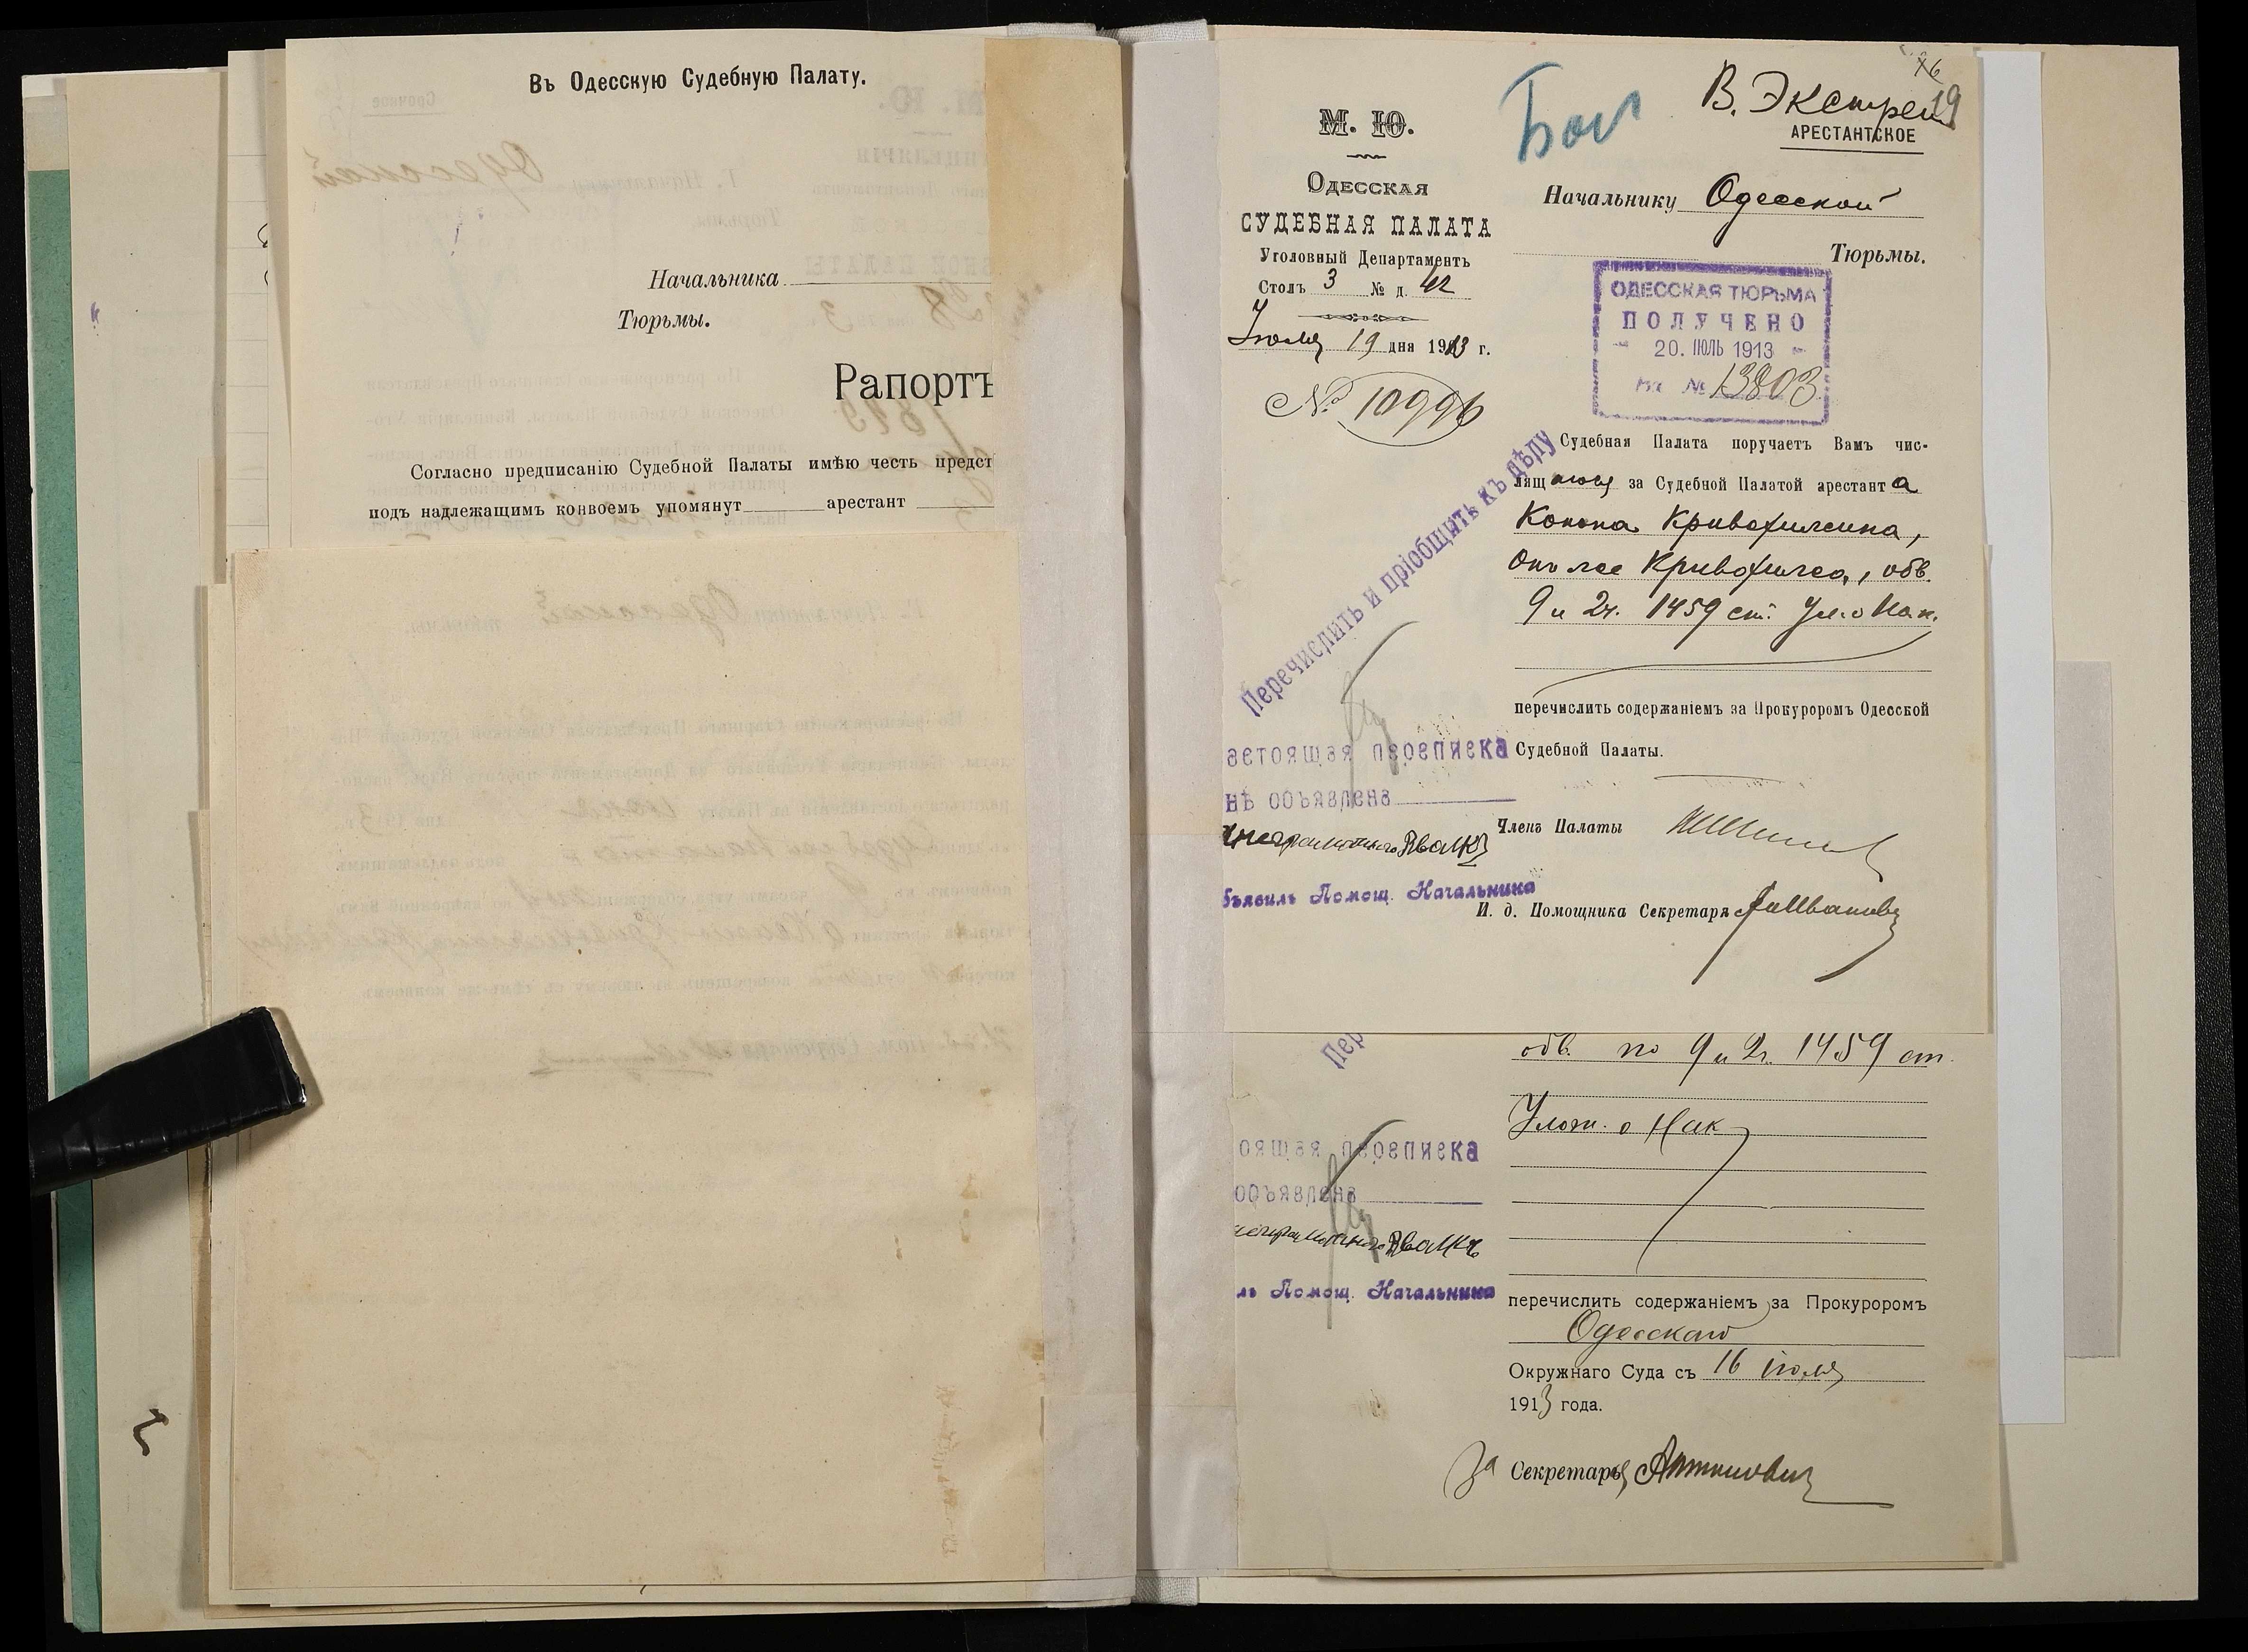 Въ Одесскую Судебную Палату.
Начальника
Тюрьмы.
Рапортъ
Согласно предписанію Судебной Палаты имѣю честь предст
подъ надлежащимъ конвоемъ упомянут арестант
19
В. Экстрен
АРЕСТАНТСКОЕ
М. Ю.
ОДЕССКАЯ
СУДЕБНАЯ ПАЛАТА
Уголовный Департаментъ
Столъ 3 № д. 42
Іюля 19 дня 1913 г.
№ 10996
Начальнику Одесской
Тюрьмы.
ОДЕССКАЯ ТЮРЬМА
ПОЛУЧЕНО
20. ІЮЛЬ 1913
Вх. № 13803
Перечислить и пріобщить къ дѣлу
Судебная Палата поручаетъ Вамъ чис-
лящагося за Судебной Палатой арестанта
Конона
онъ же обв.
9 и 2 ч. 1459 ст. Ул. о Нак.
перечислить содержаніемъ за Прокуроромъ Одесской
Судебной Палаты.
астоящая переписка
нѣ объявлена
неграмотного
бъявилъ Помощ. Начальника
Членъ Палаты
И. д. Помощника Секретаря
Пер
обв. по 9 и 2 ч. 1459 ст.
Улож. о Нак
оящая переписка
объявлена
неграмотного
лъ Помощ. Начальника
перечислить содержаніемъ за Прокуроромъ
Одесскаго
Окружнаго Суда съ 16 іюля
1913 года.
За Секретаря